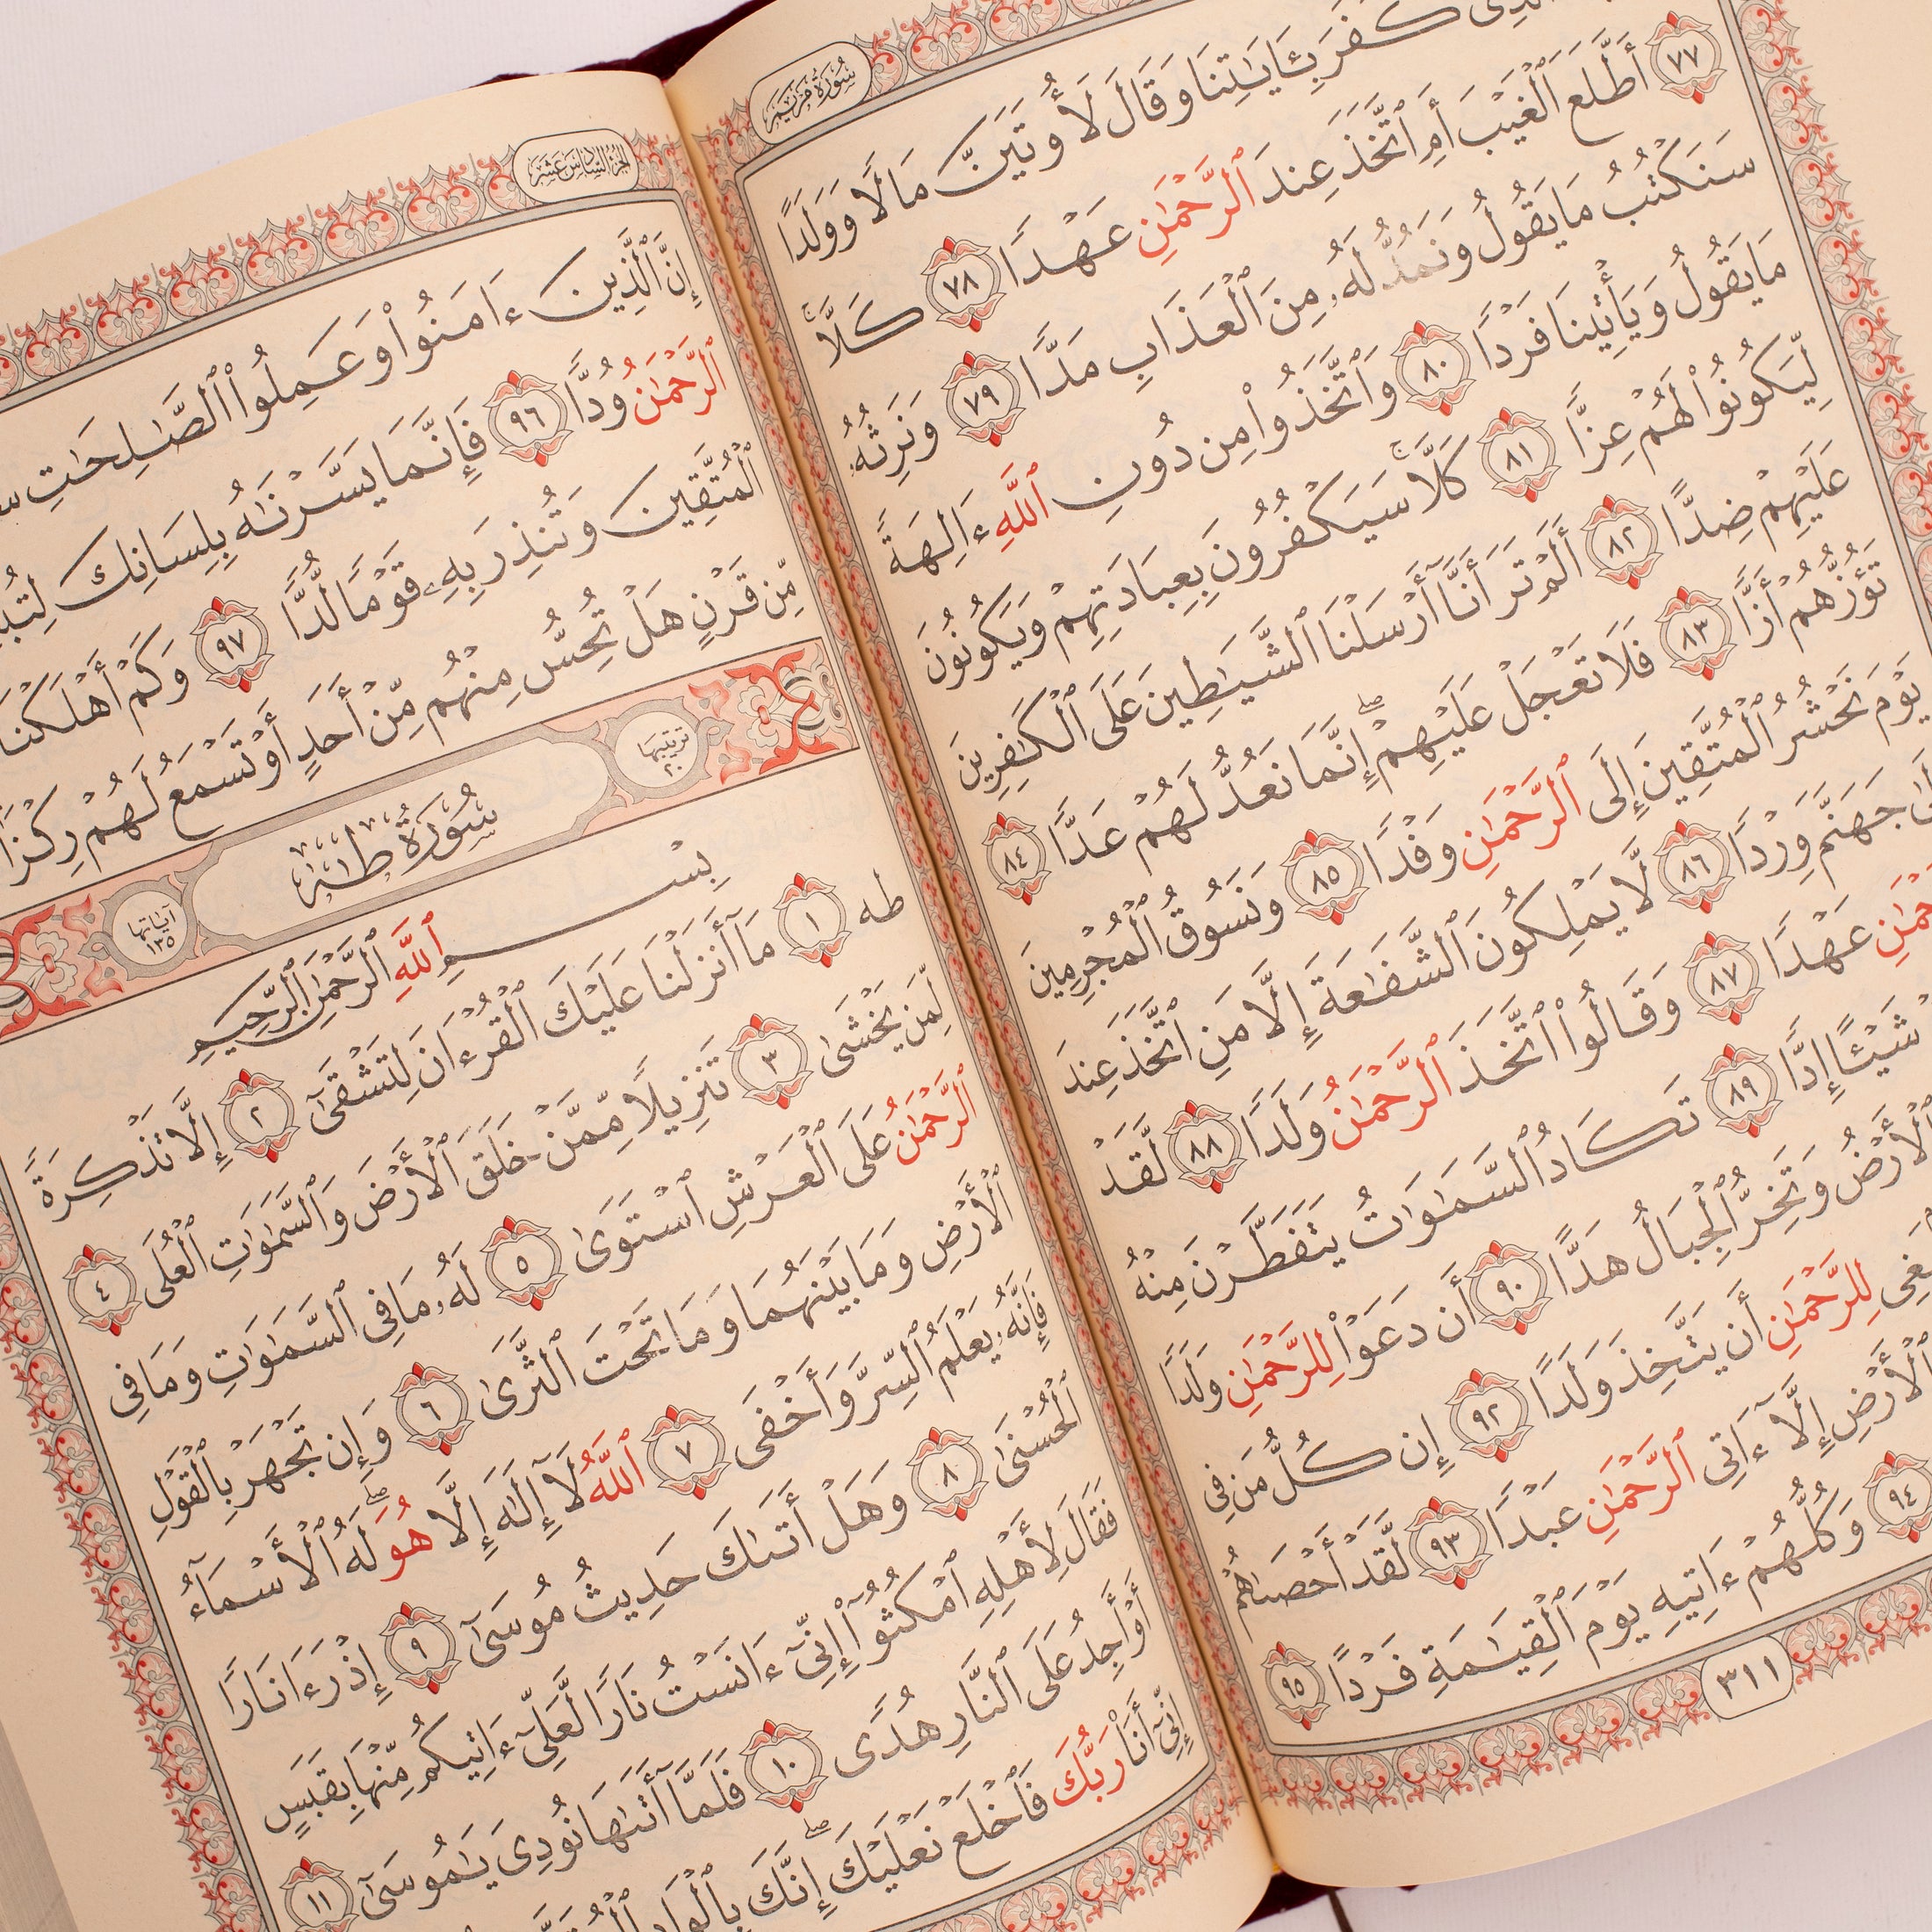 سُورَةُ مَرْيَمَ
كَفَرَ بِـَٔايَٰتِنَا وَقَالَ لَأُوتَيَنَّ مَالًا وَوَلَدًا
٧٧ أَطَّلَعَ ٱلْغَيْبَ أَمِ ٱتَّخَذَ عِندَ ٱلرَّحْمَٰنِ عَهْدًا ٧٨ كَلَّا ۚ
سَنَكْتُبُ مَا يَقُولُ وَنَمُدُّ لَهُۥ مِنَ ٱلْعَذَابِ مَدًّا ٧٩ وَنَرِثُهُۥ
مَا يَقُولُ وَيَأْتِينَا فَرْدًا ٨٠ وَٱتَّخَذُوا۟ مِن دُونِ ٱللَّهِ ءَالِهَةً
لِّيَكُونُوا۟ لَهُمْ عِزًّا ٨١ كَلَّا ۚ سَيَكْفُرُونَ بِعِبَادَتِهِمْ وَيَكُونُونَ
عَلَيْهِمْ ضِدًّا ٨٢ أَلَمْ تَرَ أَنَّآ أَرْسَلْنَا ٱلشَّيَٰطِينَ عَلَى ٱلْكَٰفِرِينَ
تَؤُزُّهُمْ أَزًّا ٨٣ فَلَا تَعْجَلْ عَلَيْهِمْ ۖ إِنَّمَا نَعُدُّ لَهُمْ عَدًّا ٨٤
يَوْمَ نَحْشُرُ ٱلْمُتَّقِينَ إِلَى ٱلرَّحْمَٰنِ وَفْدًا ٨٥ وَنَسُوقُ ٱلْمُجْرِمِينَ
جَهَنَّمَ وِرْدًا ٨٦ لَّا يَمْلِكُونَ ٱلشَّفَٰعَةَ إِلَّا مَنِ ٱتَّخَذَ عِندَ
عَهْدًا ٨٧ وَقَالُوا۟ ٱتَّخَذَ ٱلرَّحْمَٰنُ وَلَدًا ٨٨ لَّقَدْ
شَيْـًٔا إِدًّا ٨٩ تَكَادُ ٱلسَّمَٰوَٰتُ يَتَفَطَّرْنَ مِنْهُ
ٱلْأَرْضُ وَتَخِرُّ ٱلْجِبَالُ هَدًّا ٩٠ أَن دَعَوْا۟ لِلرَّحْمَٰنِ وَلَدًا
لِلرَّحْمَٰنِ أَن يَتَّخِذَ وَلَدًا ٩٢ إِن كُلُّ مَن فِى
ٱلْأَرْضِ إِلَّآ ءَاتِى ٱلرَّحْمَٰنِ عَبْدًا ٩٣ لَّقَدْ أَحْصَىٰهُمْ
٩٤ وَكُلُّهُمْ ءَاتِيهِ يَوْمَ ٱلْقِيَٰمَةِ فَرْدًا ٩٥
٣١١
الجزء السادس عشر
إِنَّ ٱلَّذِينَ ءَامَنُوا۟ وَعَمِلُوا۟ ٱلصَّٰلِحَٰتِ
ٱلرَّحْمَٰنُ وُدًّا ٩٦ فَإِنَّمَا يَسَّرْنَٰهُ بِلِسَانِكَ
ٱلْمُتَّقِينَ وَتُنذِرَ بِهِۦ قَوْمًا لُّدًّا ٩٧ وَكَمْ أَهْلَكْنَا
مِّن قَرْنٍ هَلْ تُحِسُّ مِنْهُم مِّنْ أَحَدٍ أَوْ تَسْمَعُ لَهُمْ رِكْزًا
ترتيبها ٢٠ سُورَةُ طٰهٰ آياتها ١٣٥
بِسْمِ ٱللَّهِ ٱلرَّحْمَٰنِ ٱلرَّحِيمِ
طه ١ مَآ أَنزَلْنَا عَلَيْكَ ٱلْقُرْءَانَ لِتَشْقَىٰٓ ٢ إِلَّا تَذْكِرَةً
لِّمَن يَخْشَىٰ ٣ تَنزِيلًا مِّمَّنْ خَلَقَ ٱلْأَرْضَ وَٱلسَّمَٰوَٰتِ ٱلْعُلَى ٤
ٱلرَّحْمَٰنُ عَلَى ٱلْعَرْشِ ٱسْتَوَىٰ ٥ لَهُۥ مَا فِى ٱلسَّمَٰوَٰتِ وَمَا فِى
ٱلْأَرْضِ وَمَا بَيْنَهُمَا وَمَا تَحْتَ ٱلثَّرَىٰ ٦ وَإِن تَجْهَرْ بِٱلْقَوْلِ
فَإِنَّهُۥ يَعْلَمُ ٱلسِّرَّ وَأَخْفَى ٧ ٱللَّهُ لَآ إِلَٰهَ إِلَّا هُوَ ۖ لَهُ ٱلْأَسْمَآءُ
ٱلْحُسْنَىٰ ٨ وَهَلْ أَتَىٰكَ حَدِيثُ مُوسَىٰٓ ٩ إِذْ رَءَا نَارًا
فَقَالَ لِأَهْلِهِ ٱمْكُثُوٓا۟ إِنِّىٓ ءَانَسْتُ نَارًا لَّعَلِّىٓ ءَاتِيكُم مِّنْهَا بِقَبَسٍ
أَوْ أَجِدُ عَلَى ٱلنَّارِ هُدًى ١٠ فَلَمَّآ أَتَىٰهَا نُودِىَ يَٰمُوسَىٰٓ ١١
إِنِّىٓ أَنَا۠ رَبُّكَ فَٱخْلَعْ نَعْلَيْكَ ۖ إِنَّكَ بِٱلْوَادِ